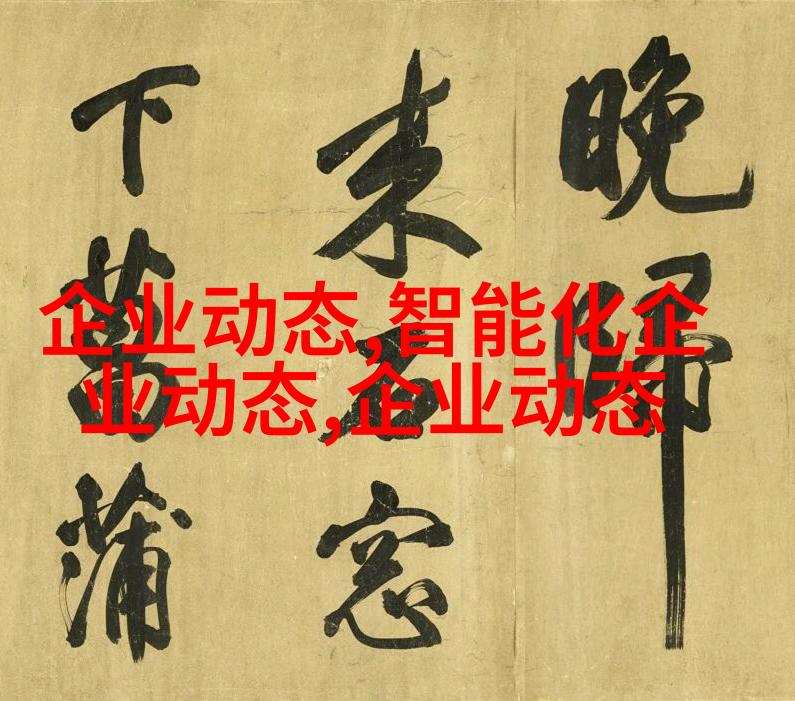 晚歸
来石窓
下菖蒲
企业动态,智能化企
业动态,企业动态